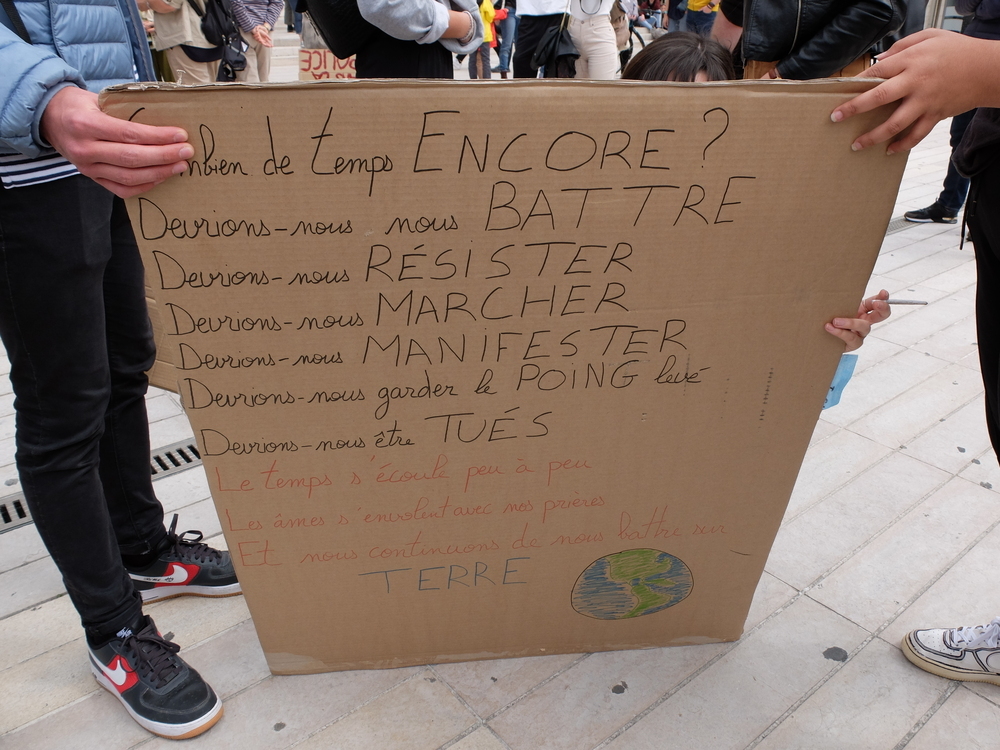 mbien de temps ENCORE ?
Devrions-nous nous BATTRE
Devrions-nous RÉSISTER
Devrions-nous MARCHER
Devrions-nous MANIFESTER
Devrions-nous garder le POING levé
Devrions-nous être TUÉS
Le temps s'écoule peu à peu
Les âmes s'envolent avec nos prières
Et nous continuons de nous battre sur
TERRE